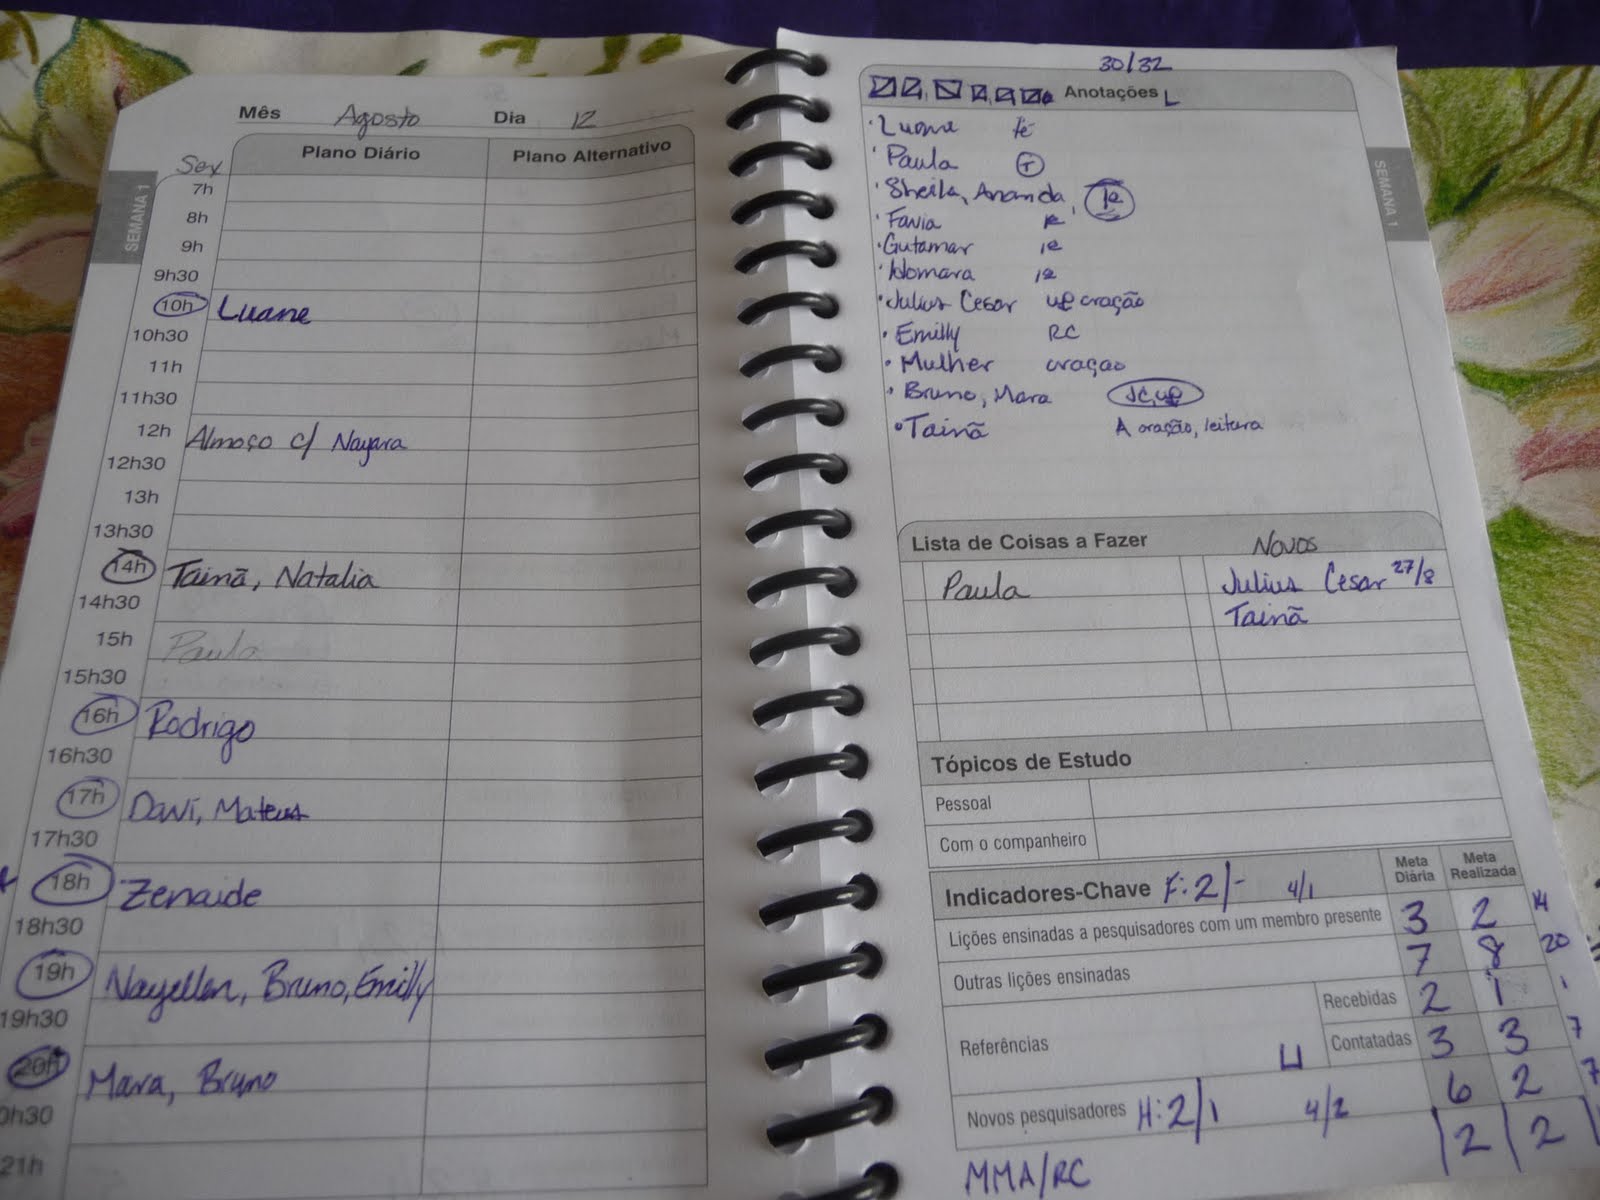 Mês Agosto Dia 12
Sex Plano Diário Plano Alternativo
SEMANA 1
7h
8h
9h
9h30
10h Luane
10h30
11h
11h30
12h Almoço c/ Nayara
12h30
13h
13h30
14h Tainã, Natalia
14h30
15h Paula
15h30
16h Rodrigo
16h30
17h Davi, Mateus
17h30
18h Zenaide
18h30
19h Nayellen, Bruno, Emilly
19h30
20h Mara, Bruno
0h30
21h
30/32
Anotações L
SEMANA 1
· Luane fé
· Paula
· Sheila, Ananda,
· Favia
· Gutamar
· Idomara
· Julius Cesar oração
· Emilly RC
· Mulher oração
· Bruno, Mara
· Tainã A oração, leitura
Lista de Coisas a Fazer Novos
Paula Julius Cesar 27/8
Tainã
Tópicos de Estudo
Pessoal
Com o companheiro
Indicadores-Chave F:2/- 4/1 Meta Diária Meta Realizada
Lições ensinadas a pesquisadores com um membro presente 3 2 14
Outras lições ensinadas 7 8 20
Referências Recebidas 2 1 1
Contatadas 3 3 7
Novos pesquisadores H:2/1 4/2 6 2 7
2 2
MMA/RC